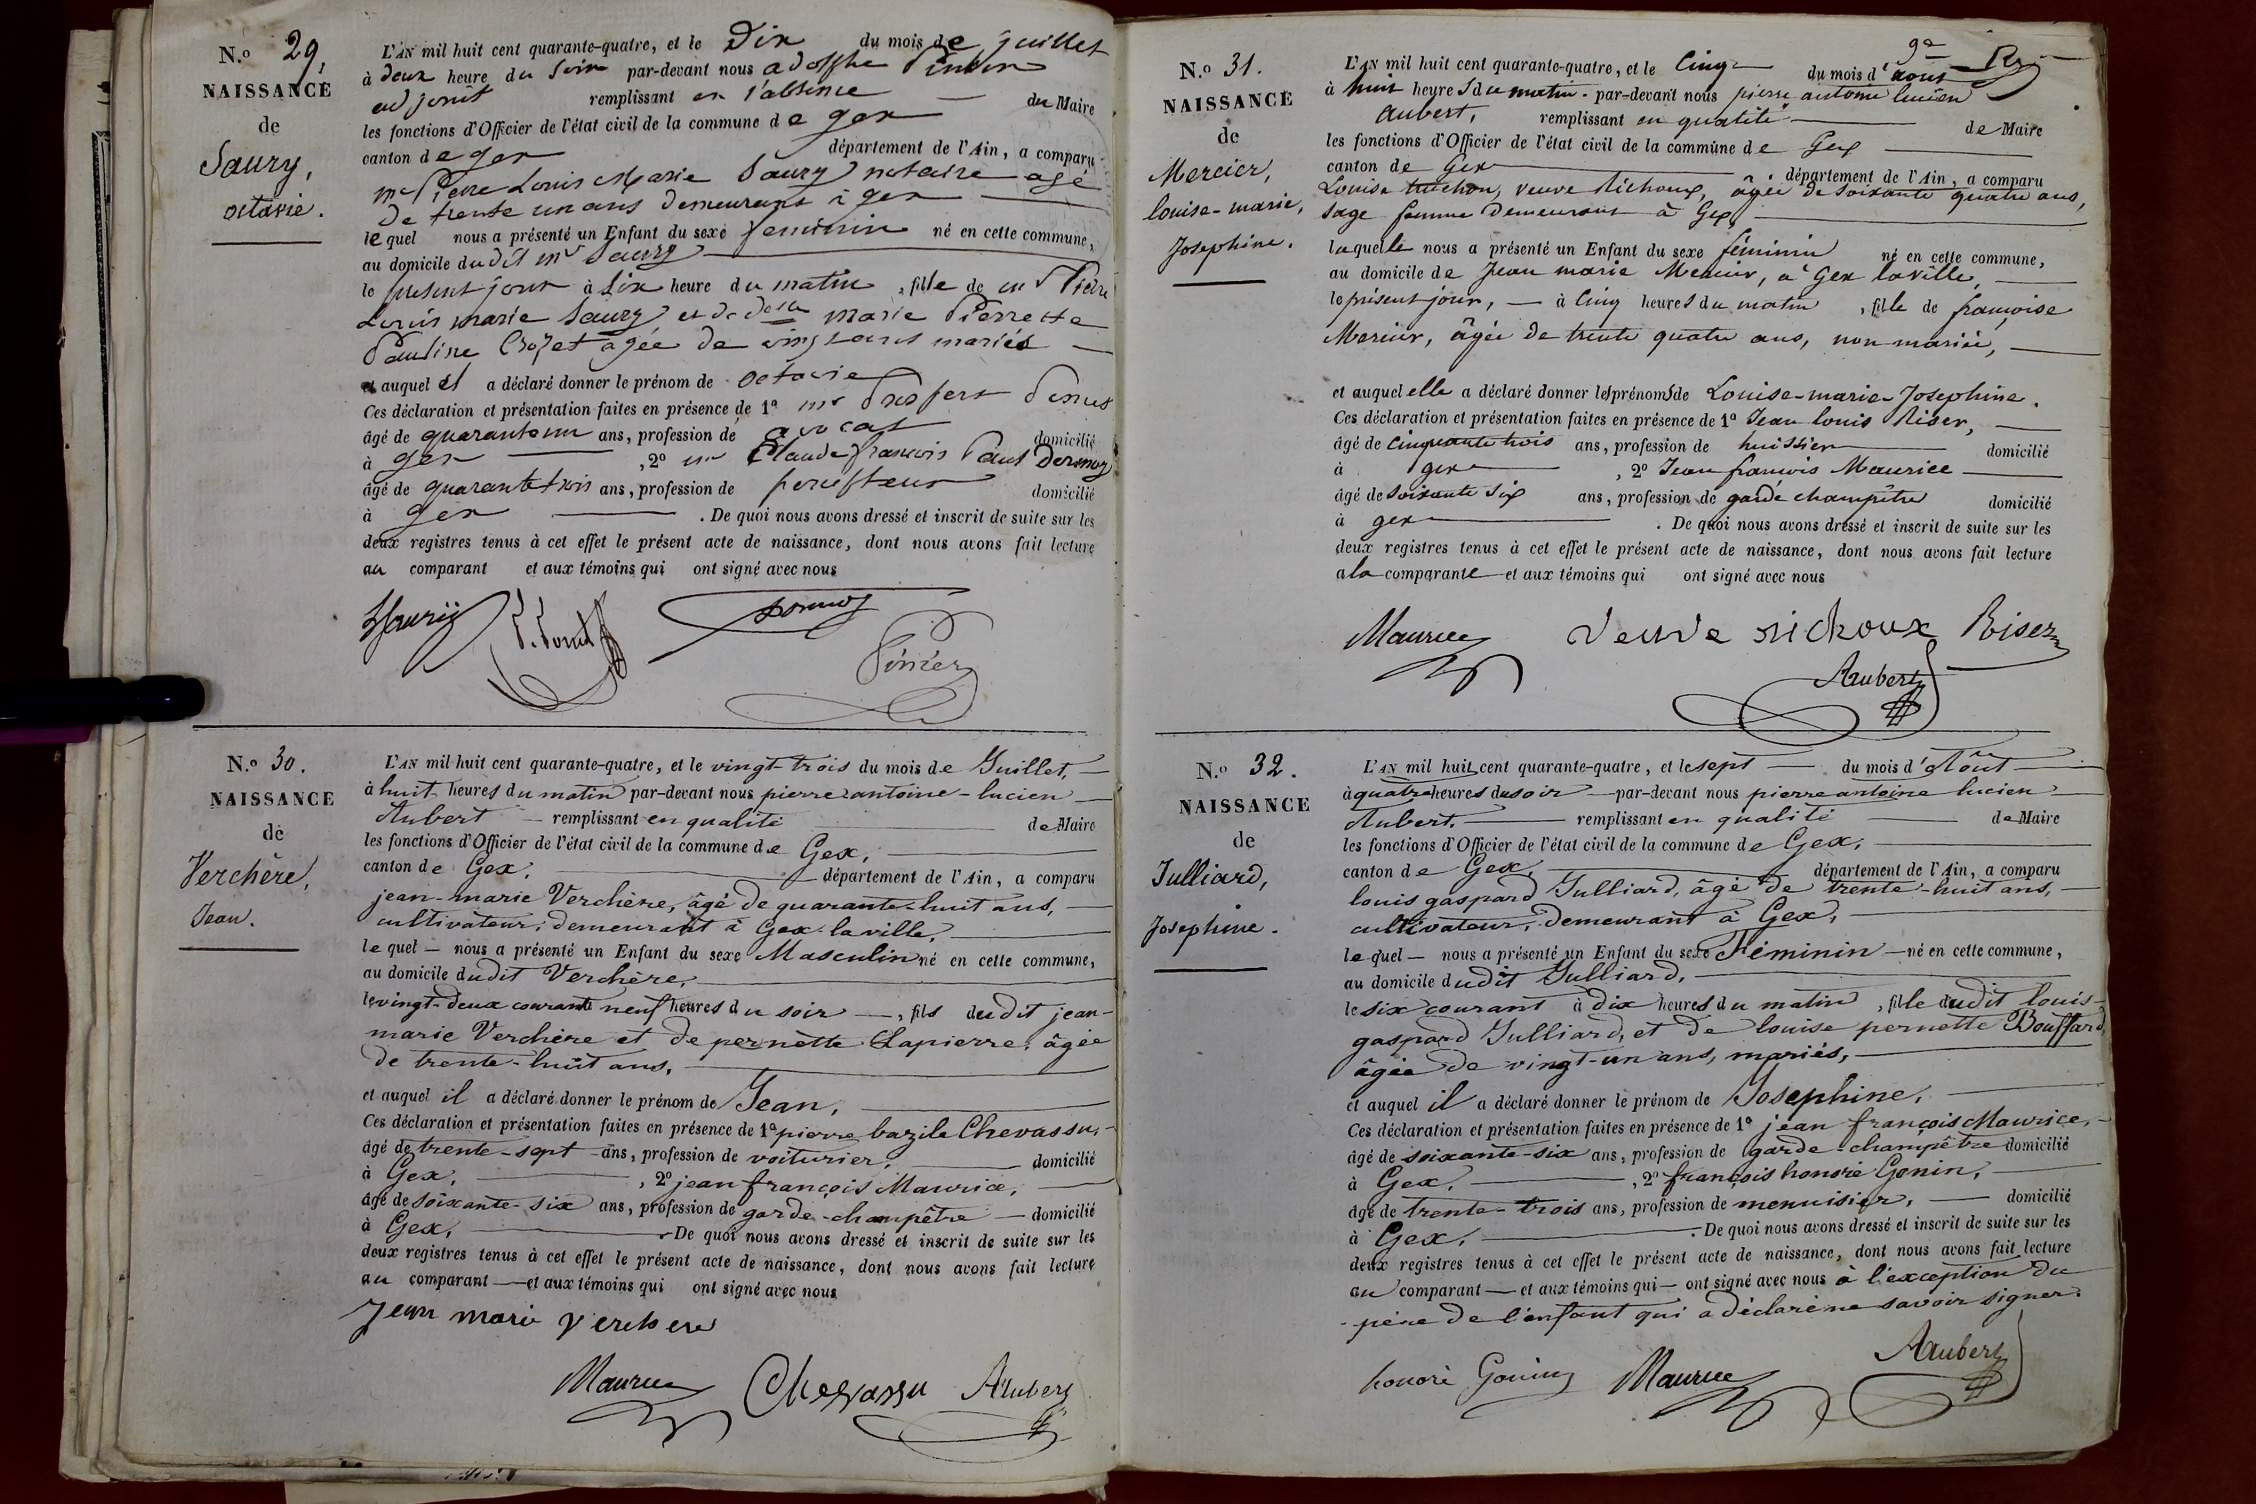 N.o 29,
NAISSANCE
de
Saury,
octavie.
L'AN mil huit cent quarante-quatre, et le Dix du mois de juillet
à deux heure du soir par-devant nous adolphe
adjoint remplissant en l'absence du Maire
les fonctions d'Officier de l'état civil de la commune de gex
canton de gex département de l'Ain, a comparu
mr Pierre Louis Marie Saury notaire agé
de trente un ans demeurant à gex
lequel nous a présenté un Enfant du sexe feminin né en cette commune,
au domicile dudit mr Saury
le présent jour à six heure du matin, fille de mr Pierre
Louis marie Saury et de delle marie Pierrette
Pauline agée de ans mariés
et auquel il a déclaré donner le prénom de octavie
Ces déclaration et présentation faites en présence de 1o mr Prosper
âgé de quarante un ans, profession de avocat domicilié
à gex, 2o mr Claude françois Paul
âgé de quarante trois ans, profession de percepteur domicilié
à gex. De quoi nous avons dressé et inscrit de suite sur les
deux registres tenus à cet effet le présent acte de naissance, dont nous avons fait lecture
au comparant et aux témoins qui ont signé avec nous
N.o 30.
NAISSANCE
de
Verchère,
Jean.
L'AN mil huit cent quarante-quatre, et le vingt-trois du mois de Juillet,
à huit heures du matin par-devant nous pierre antoine-lucien
Aubert remplissant en qualité de Maire
les fonctions d'Officier de l'état civil de la commune de Gex,
canton de Gex, département de l'Ain, a comparu
jean-marie Verchère, âgé de quarante-huit ans,
cultivateur, demeurant à Gex-la ville,
lequel nous a présenté un Enfant du sexe Masculin né en cette commune,
au domicile dudit Verchère,
le vingt-deux courant à neuf heures du soir, fils dudit jean-
marie Verchère et de pernette Lapierre, âgée
de trente-huit ans,
et auquel il a déclaré donner le prénom de Jean,
Ces déclaration et présentation faites en présence de 1o pierre bazile Chevassu,
âgé de trente-sept ans, profession de voiturier, domicilié
à Gex, 2o jean françois Maurice,
âgé de soixante-six ans, profession de garde-champêtre domicilié
à Gex, De quoi nous avons dressé et inscrit de suite sur les
deux registres tenus à cet effet le présent acte de naissance, dont nous avons fait lecture
au comparant et aux témoins qui ont signé avec nous
Jean mari Verchere
Maurice Chevassu Aubert
N.o 31.
NAISSANCE
de
Mercier,
louise-marie,
Josephine.
L'AN mil huit cent quarante-quatre, et le Cinq du mois d'aout
à huit heures du matin par-devant nous pierre antoine lucien
Aubert, remplissant en qualité de Maire
les fonctions d'Officier de l'état civil de la commune de Gex
canton de Gex département de l'Ain, a comparu
Louise veuve Richoux, âgée de soixante quatre ans,
sage femme demeurant à Gex,
laquelle nous a présenté un Enfant du sexe féminin né en cette commune,
au domicile de Jean marie Mercier, à Gex la ville,
le présent jour, à Cinq heures du matin, fille de françoise
Mercier, âgée de trente quatre ans, non mariée,
et auquel elle a déclaré donner les prénoms de Louise-marie-Josephine.
Ces déclaration et présentation faites en présence de 1o Jean louis Riser,
âgé de cinquante trois ans, profession de huissier domicilié
à gex, 2o Jean françois Maurice
âgé de soixante six ans, profession de garde champêtre domicilié
à gex. De quoi nous avons dressé et inscrit de suite sur les
deux registres tenus à cet effet le présent acte de naissance, dont nous avons fait lecture
a la comparante et aux témoins qui ont signé avec nous
Maurice veuve richoux Riser
Aubert
N.o 32.
NAISSANCE
de
Julliard,
Josephine.
L'AN mil huit cent quarante-quatre, et le sept du mois d'Août
à quatre heures du soir par-devant nous pierre antoine lucien
Aubert, remplissant en qualité de Maire
les fonctions d'Officier de l'état civil de la commune de Gex,
canton de Gex, département de l'Ain, a comparu
louis gaspard Julliard, âgé de trente-huit ans,
cultivateur, demeurant à Gex,
lequel nous a présenté un Enfant du sexe Féminin né en cette commune,
au domicile dudit Julliard,
le six courant à dix heures du matin, fille dudit louis-
gaspard Julliard, et de louise pernette Bouffard,
âgée de vingt-un ans, mariés,
et auquel il a déclaré donner le prénom de Josephine,
Ces déclaration et présentation faites en présence de 1o jean françois Maurice,
âgé de soixante-six ans, profession de garde-champêtre domicilié
à Gex, 2o françois honoré Gonin,
âgé de trente-trois ans, profession de menuisier, domicilié
à Gex, De quoi nous avons dressé et inscrit de suite sur les
deux registres tenus à cet effet le présent acte de naissance, dont nous avons fait lecture
au comparant et aux témoins qui ont signé avec nous à l'exception du
père de l'enfant qui a déclaré ne savoir signer.
honoré Gonin Maurice Aubert